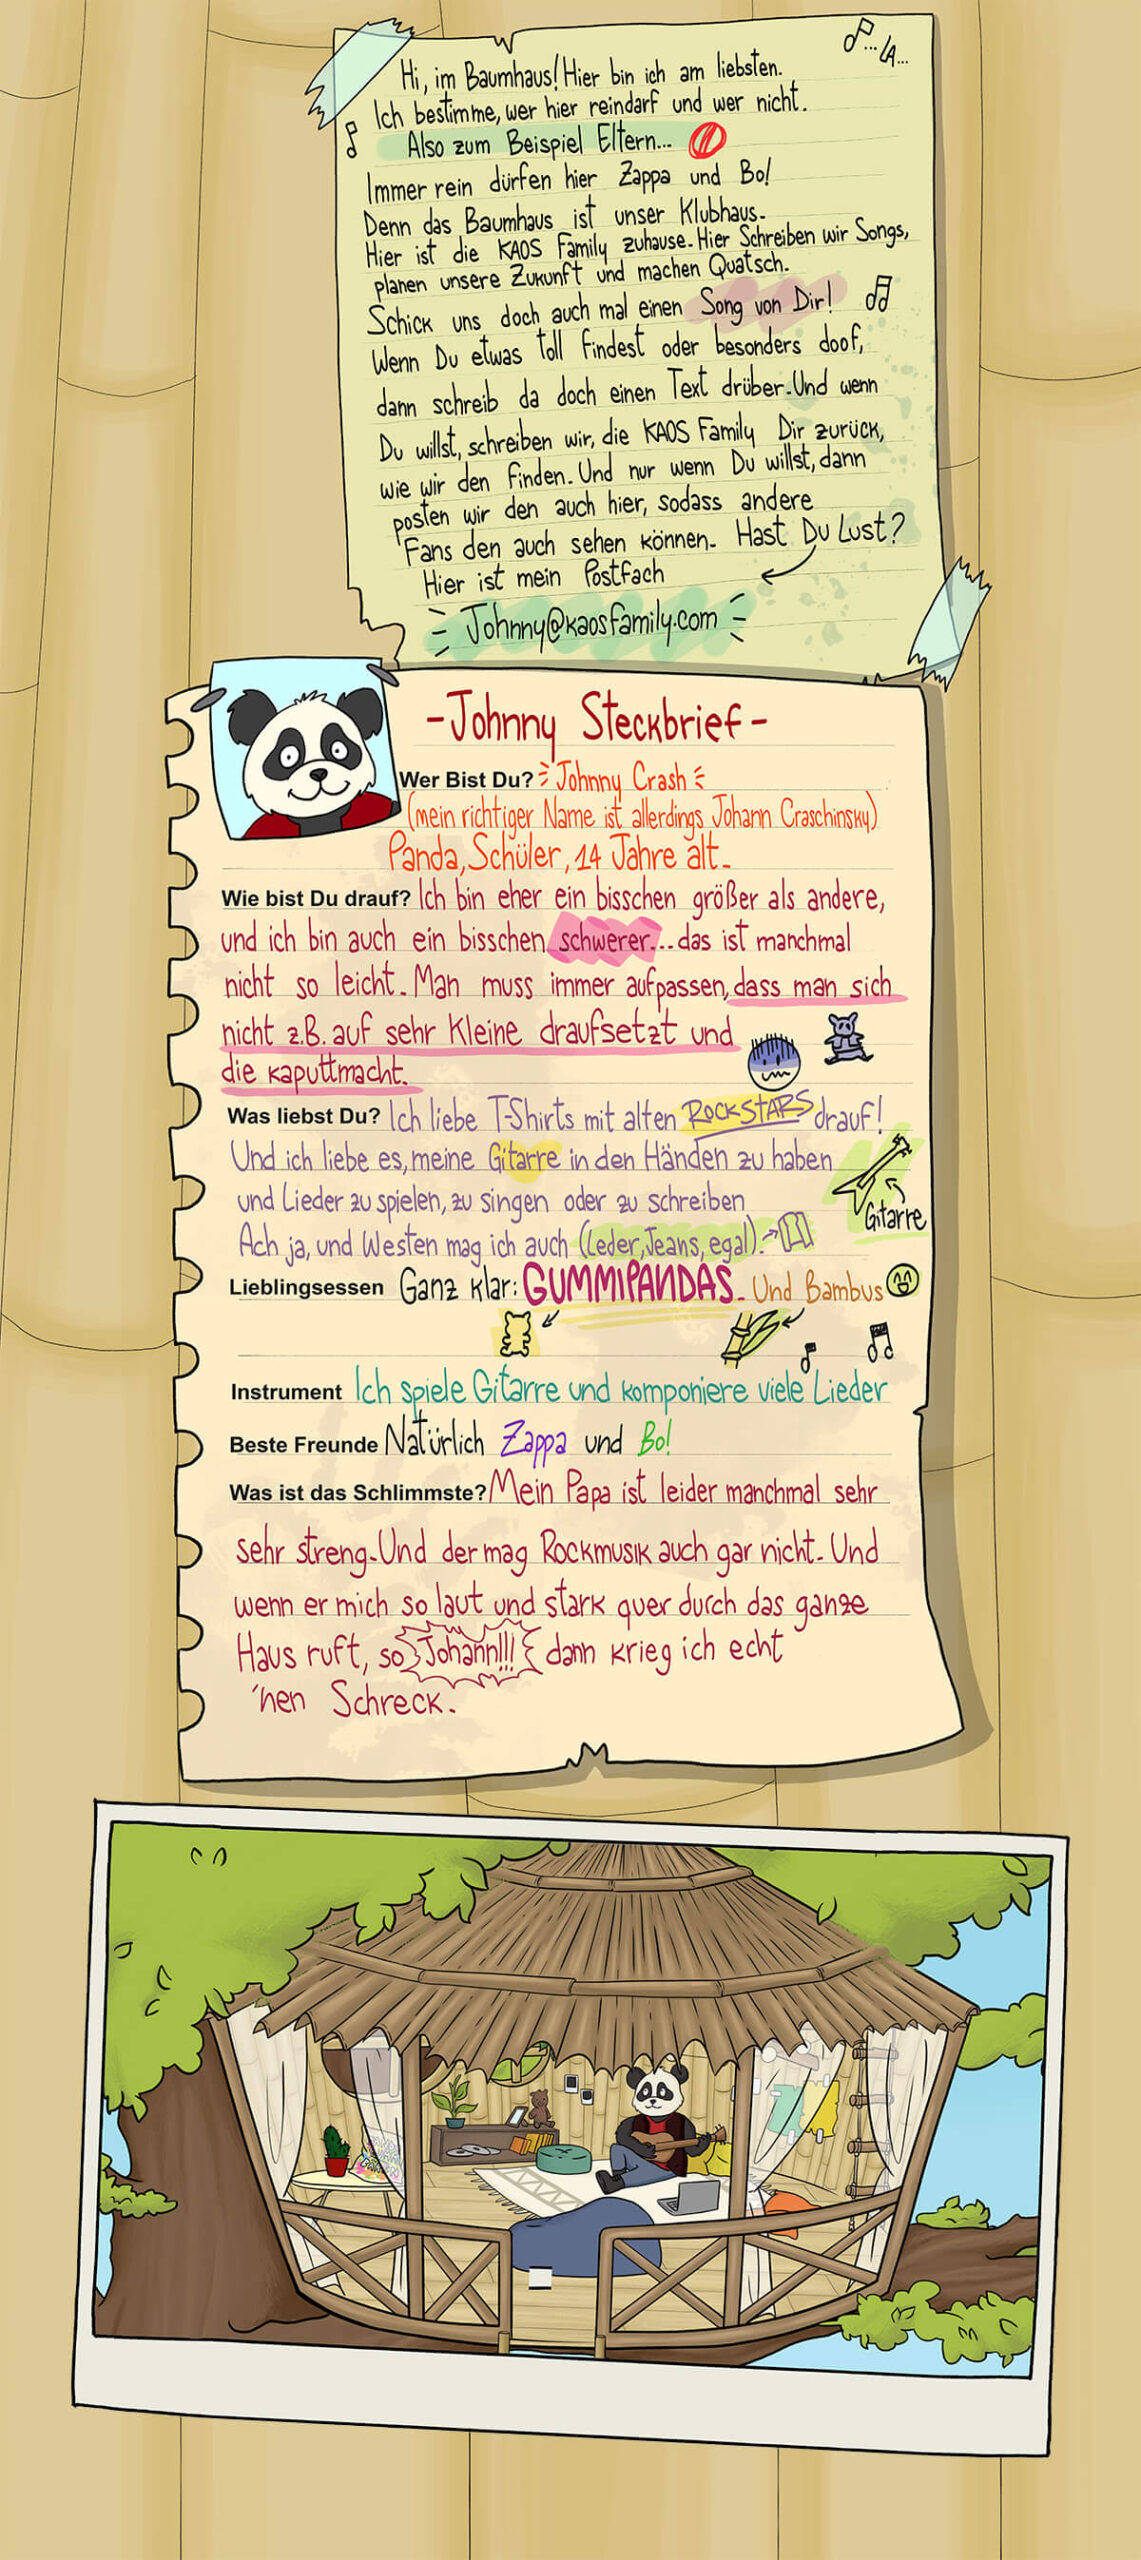 ...LA...
Hi, im Baumhaus! Hier bin ich am liebsten.
Ich bestimme, wer hier reindarf und wer nicht.
Also zum Beispiel Eltern...
Immer rein dürfen hier Zappa und Bo!
Denn das Baumhaus ist unser Klubhaus.
Hier ist die KAOS Family zuhause. Hier Schreiben wir Songs,
planen unsere Zukunft und machen Quatsch.
Schick uns doch auch mal einen Song von Dir!
Wenn Du etwas toll findest oder besonders doof,
dann schreib da doch einen Text drüber. Und wenn
Du willst, schreiben wir, die KAOS Family Dir zurück,
wie wir den finden. Und nur wenn Du willst, dann
posten wir den auch hier, sodass andere
Fans den auch sehen können. Hast Du Lust?
Hier ist mein Postfach
Johnny@kaosfamily.com
-Johnny Steckbrief-
Wer Bist Du? Johnny Crash
(mein richtiger Name ist allerdings Johann Craschinsky)
Panda, Schüler, 14 Jahre alt.
Wie bist Du drauf? Ich bin eher ein bisschen größer als andere,
und ich bin auch ein bisschen schwerer... das ist manchmal
nicht so leicht. Man muss immer aufpassen, dass man sich
nicht z.B. auf sehr Kleine draufsetzt und
die kaputtmacht.
Was liebst Du? Ich liebe T-Shirts mit alten ROCKSTARS drauf!
Und ich liebe es, meine Gitarre in den Händen zu haben
und Lieder zu spielen, zu singen oder zu schreiben
Gitarre
Ach ja, und Westen mag ich auch (Leder, Jeans, egal).
Lieblingsessen Ganz klar: GUMMIPANDAS. Und Bambus
Instrument Ich spiele Gitarre und komponiere viele Lieder
Beste Freunde Natürlich Zappa und Bo!
Was ist das Schlimmste? Mein Papa ist leider manchmal sehr
sehr streng. Und der mag Rockmusik auch gar nicht. Und
wenn er mich so laut und stark quer durch das ganze
Haus ruft, so Johann!!! dann krieg ich echt
'nen Schreck.